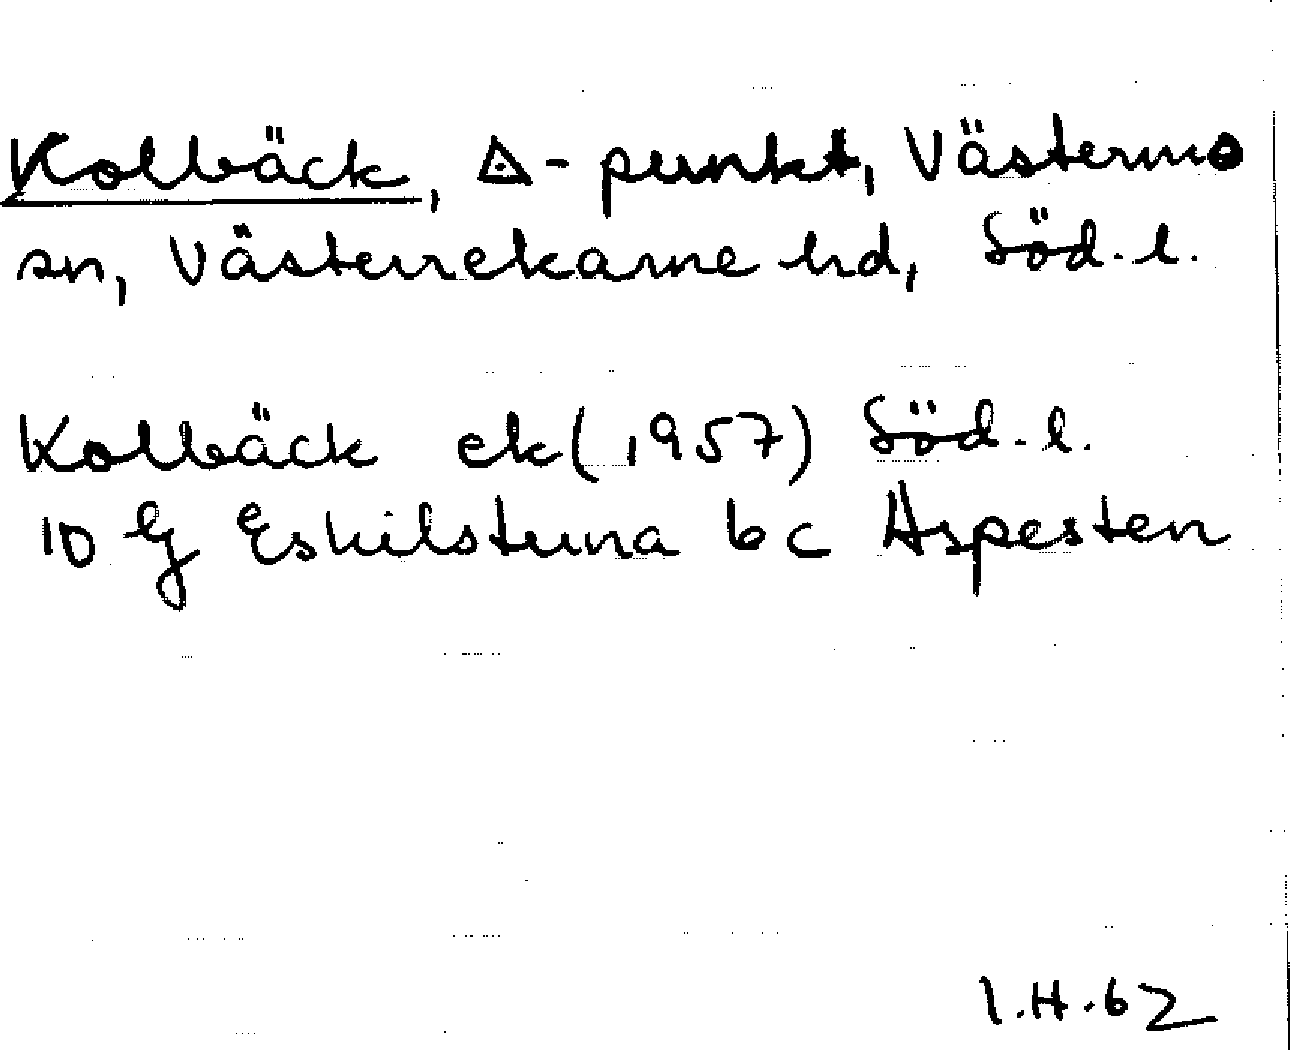 Kolbäck, △-punkt, Västermo
sn, Västerrekarne hd, Söd.l.
Kolbäck ek (1957) Söd.l.
10 G Eskilstuna bc Aspesten
I.H.62